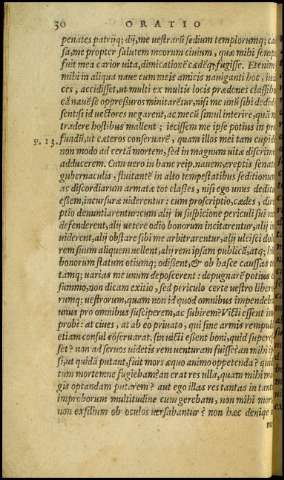 30 ORATIO
penates patrijq́; dij, me uestrarũ sedium templorumq́; ca
sa, me propter salutem meorum ciuium, quæ mihi semp
fuit mea carior uita, dimicationẽ & cædẽ fugisse. Etenim
mihi in aliqua naue cum meis amicis nauiganti hoc,
ces, accidisset, ut multi ex multis locis prædones classibus
cã nauẽ se oppressuros minitarẽtur, nisi me unũ sibi dedid
sentisi id uectores negarent, ac mecũ simul interire, quàm
tradere hostibus mallent; iecissem me ipse potius in pro
9. 13. fundũ, ut cæteros conseruarẽ, quam illos mei tam cupid
non modo ad certã mortem, sed in magnum uitæ discrim
adducerem. Cum uero in hanc reip. nauem, ereptis senat
gubernaculis, fluitantẽ in alto tempestatibus seditionum
ac discordiarum armatæ tot classes, nisi ego unus deditu
essem, incursuræ uiderentur: cum proscriptio, cædes, dir
ptio denuntiarentur: cum alij in suspicione periculi sui no
defenderent, alij uetere odio bonorum incitarentur, alij in
uiderent, alij obstare sibi me arbitrarentur, alij ulcisci dolo
rem suum aliquem uellent, alij rem ipsam publicã, atq́; hu
bonorum statum otiumq́; odissent, & ob hasce caussas
tamq́; uarias me unum deposcerent: depugnarẽ potius
summo, non dicam exitio, sed periculo certe uestro liber
rumq́; uestrorum, quam non id quod omnibus impendeb
unus pro omnibus susciperem, ac subirem? Victi essent in
probi: at ciues, at ab eo priuato, qui sine armis rempub
etiam consul cõseruarat. sin uicti essent boni, quid superes
set? non ad seruos uidetis rem uenturam fuisse? an mihi ip
si, ut quidã putant, fuit mors æquo animo oppetenda? quid
tum mortemne fugiebam? an erat res ulla, quam mihi ma
gis optandam putarem? aut ego illas res tantas in tant
improborum multitudine cum gerebam, non mihi mors
non exilium ob oculos uersabantur? non hæc deniq́;